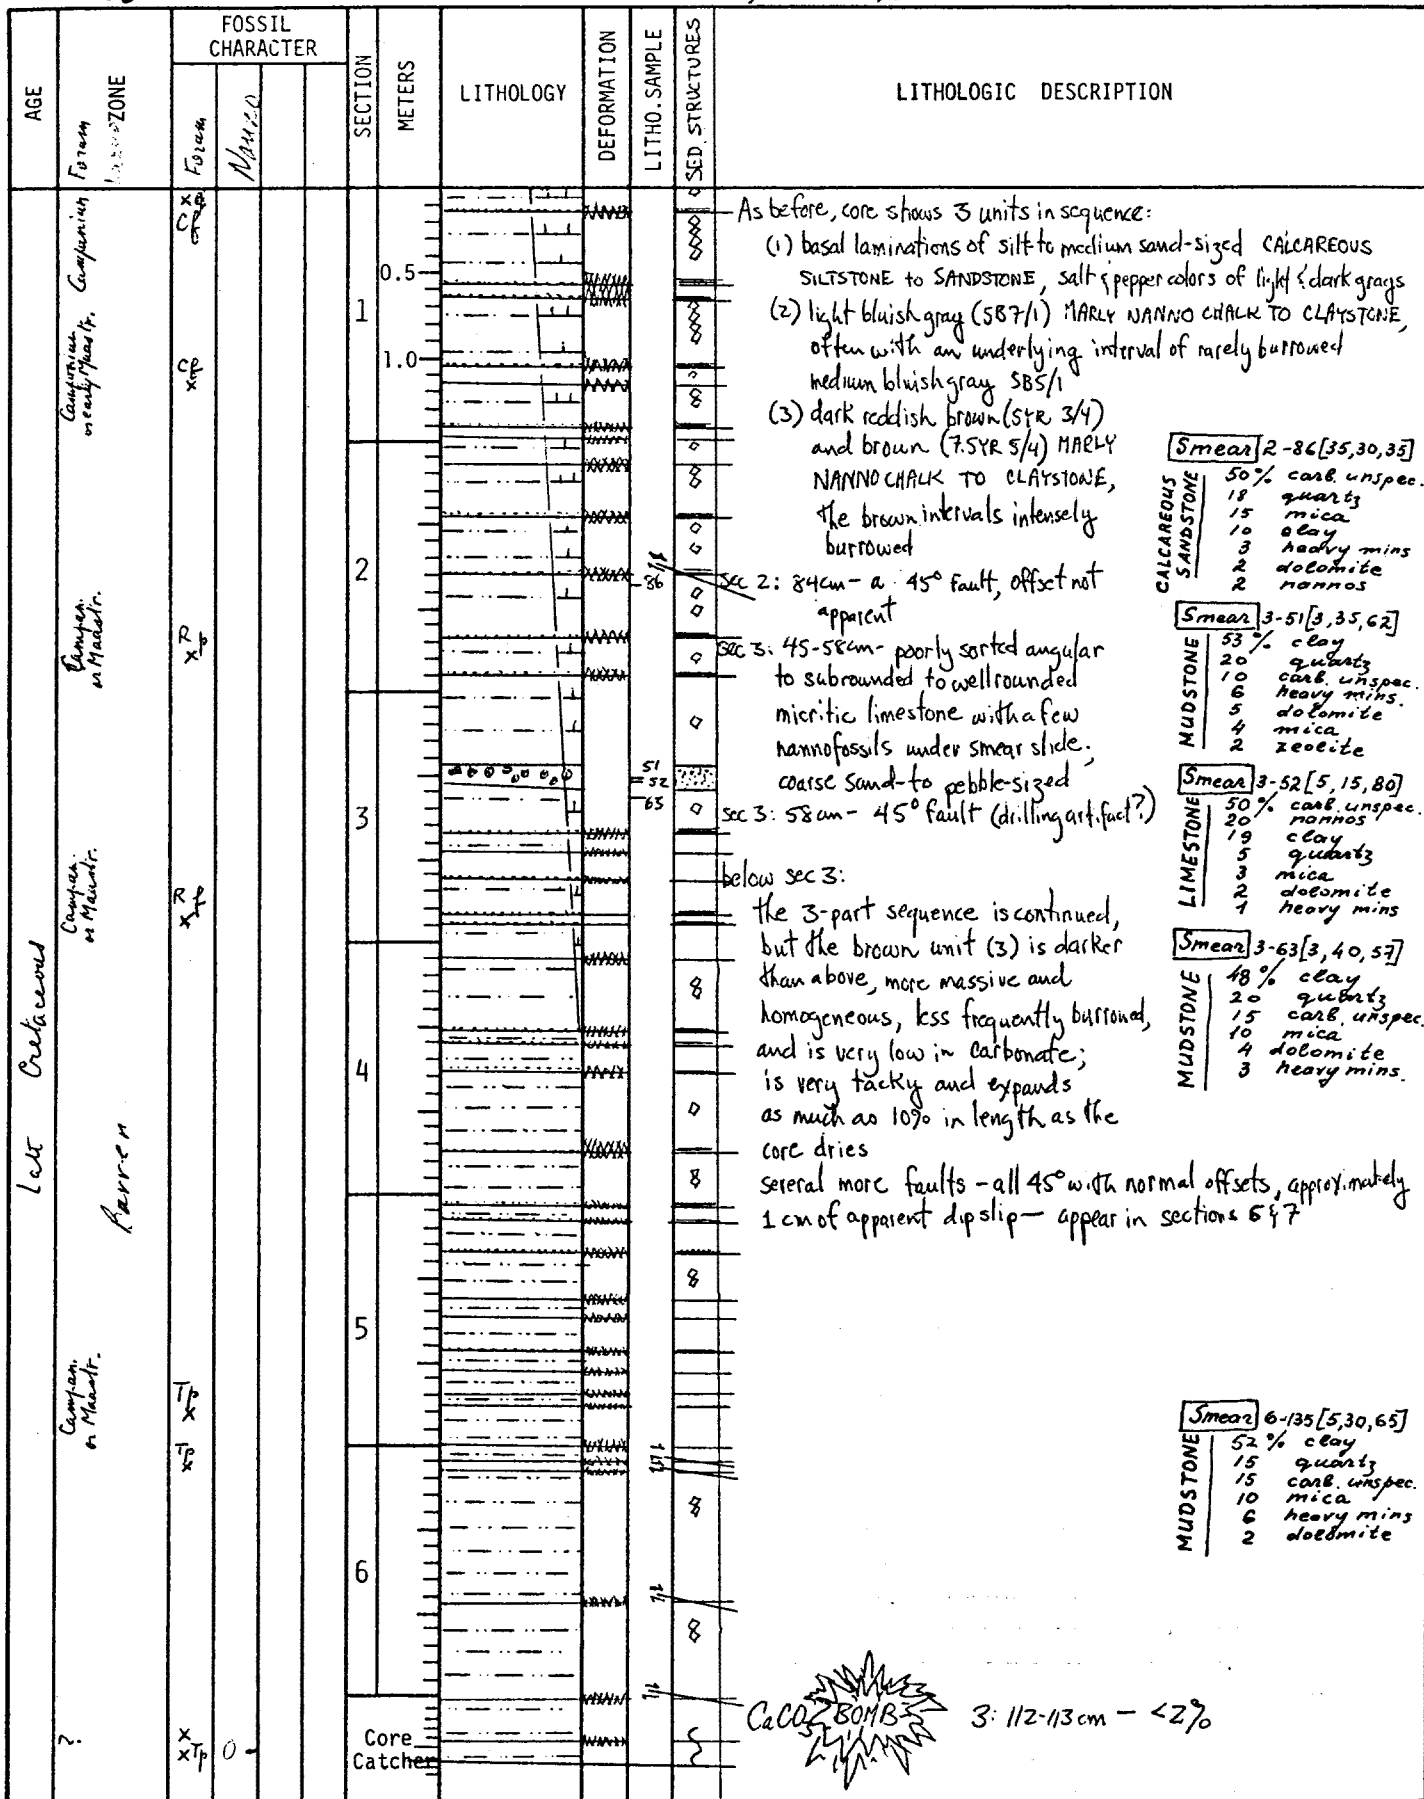 AGE
Forum
ZONE
FOSSIL
CHARACTER
Foram
Nanno
SECTION
METERS
LITHOLOGY
DEFORMATION
LITHO. SAMPLE
SED. STRUCTURES
LITHOLOGIC DESCRIPTION
Late Cretaceous
Campanian
Campanian
or early Maastr.
Campan.
or Maastr.
Campan.
or Maastr.
Barren
Campan.
or Maastr.
?
Tp
x
Tp
x
x
xTp
O -
0.5
1.0
1
2
3
4
5
6
Core
Catcher
86
51
52
63
As before, core shows 3 units in sequence:
(1) basal laminations of silt to medium sand-sized CALCAREOUS
SILTSTONE to SANDSTONE, salt & pepper colors of light & dark grays
(2) light bluish gray (5B7/1) MARLY NANNO CHALK TO CLAYSTONE,
often with an underlying interval of rarely burrowed
medium bluish gray 5B5/1
(3) dark reddish brown (5YR 3/4)
and brown (7.5YR 5/4) MARLY
NANNO CHALK TO CLAYSTONE,
the brown intervals intensely
burrowed
sec 2: 84cm - a 45° fault, offset not
apparent
sec 3: 45-58cm - poorly sorted angular
to subrounded to well rounded
micritic limestone with a few
nannofossils under smear slide.
coarse sand- to pebble-sized
sec 3: 58cm - 45° fault (drilling artifact?)
below sec 3:
the 3-part sequence is continued,
but the brown unit (3) is darker
than above, more massive and
homogeneous, less frequently burrowed,
and is very low in carbonate;
is very tacky and expands
as much as 10% in length as the
core dries
several more faults - all 45° with normal offsets, approximately
1 cm of apparent dip slip - appear in sections 6 & 7
Smear 2-86[35,30,35]
CALCAREOUS
SANDSTONE
50% carb. unspec.
18 quartz
15 mica
10 clay
3 heavy mins
2 dolomite
2 nannos
Smear 3-51[3,35,62]
MUDSTONE
53% clay
20 quartz
10 carb. unspec.
6 heavy mins.
5 dolomite
4 mica
2 zeolite
Smear 3-52[5,15,80]
LIMESTONE
50% carb. unspec.
20 nannos
19 clay
5 quartz
3 mica
2 dolomite
1 heavy mins
Smear 3-63[3,40,57]
MUDSTONE
48% clay
20 quartz
15 carb. unspec.
10 mica
4 dolomite
3 heavy mins.
Smear 6-135[5,30,65]
MUDSTONE
52% clay
15 quartz
15 carb. unspec.
10 mica
6 heavy mins
2 dolomite
CaCO3 BOMB
3: 112-113cm - <2%